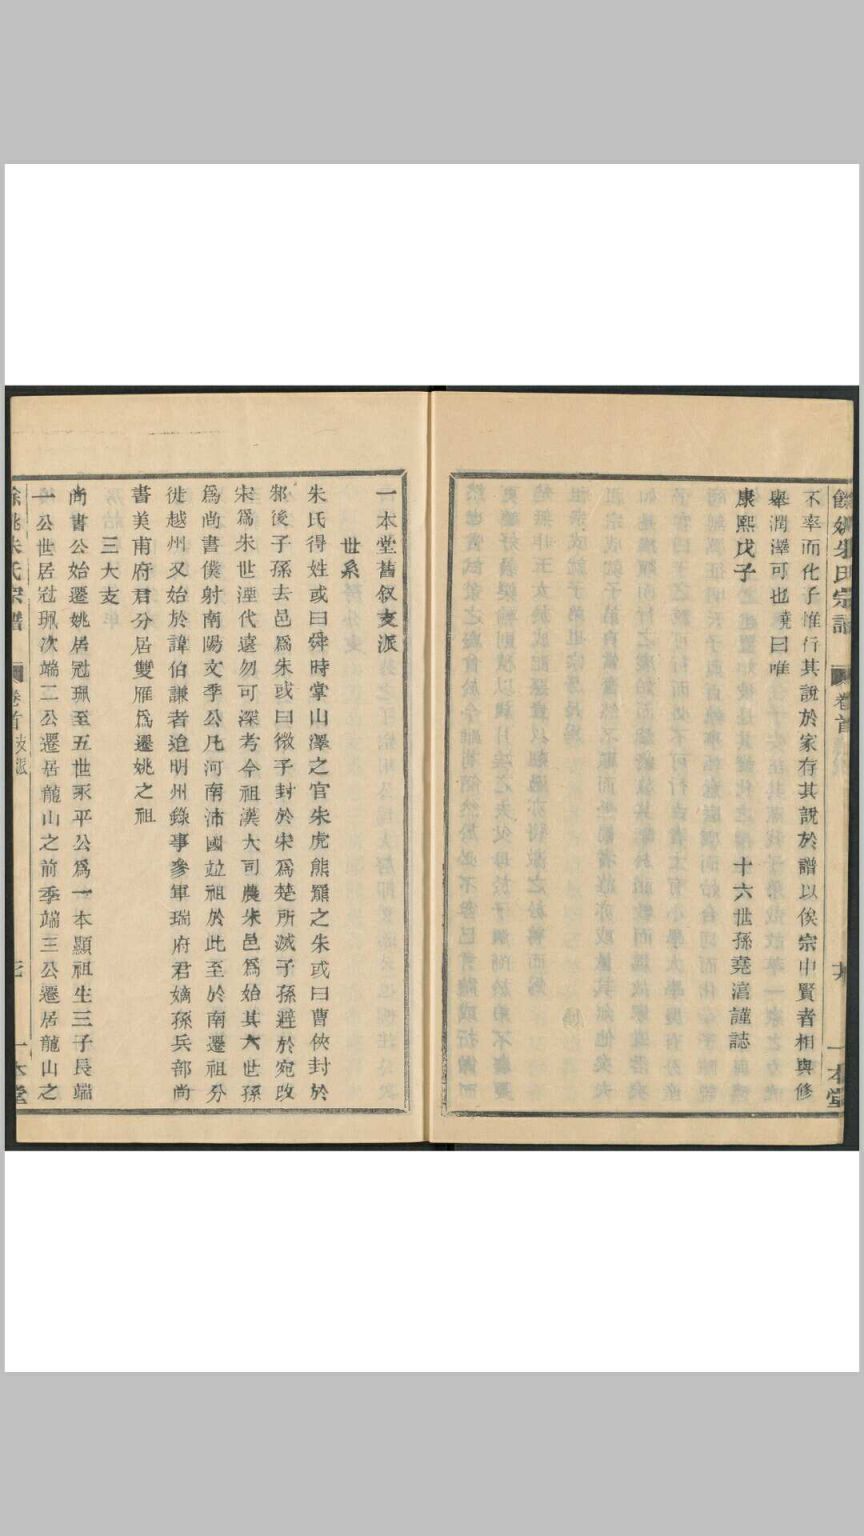 餘姚朱氏宗譜
卷首
一本堂
不率而化子惟行其說於家存其說於譜以俟宗中賢者相與修
舉潤澤可也曉曰唯
康熙戊子 十六世孫堯 謹誌
一本堂舊叙支派
世系
朱氏得姓或曰舜時掌山澤之官朱虎熊羆之朱或曰曹俠封於
邾後子孫去邑爲朱或曰微子封於宋爲楚所滅子孫避於宛改
宋爲朱世湮代遠勿可深考今祖漢大司農朱邑爲始其六世孫
爲尚書僕射南陽文季公凡河南沛國竝祖於此至於南遷祖分
徙越州又始於諱伯謙者迨明州錄事參軍瑞府君嫡孫兵部尚
書美甫府君分居雙雁爲遷姚之祖
三大支年
尚書公始遷姚居冠珮至五世永平公爲一本顯祖生三子長端
一公世居冠珮次端二公遷居龍山之前季端三公遷居龍山之
餘姚朱氏宗譜
卷首
支派
一本堂